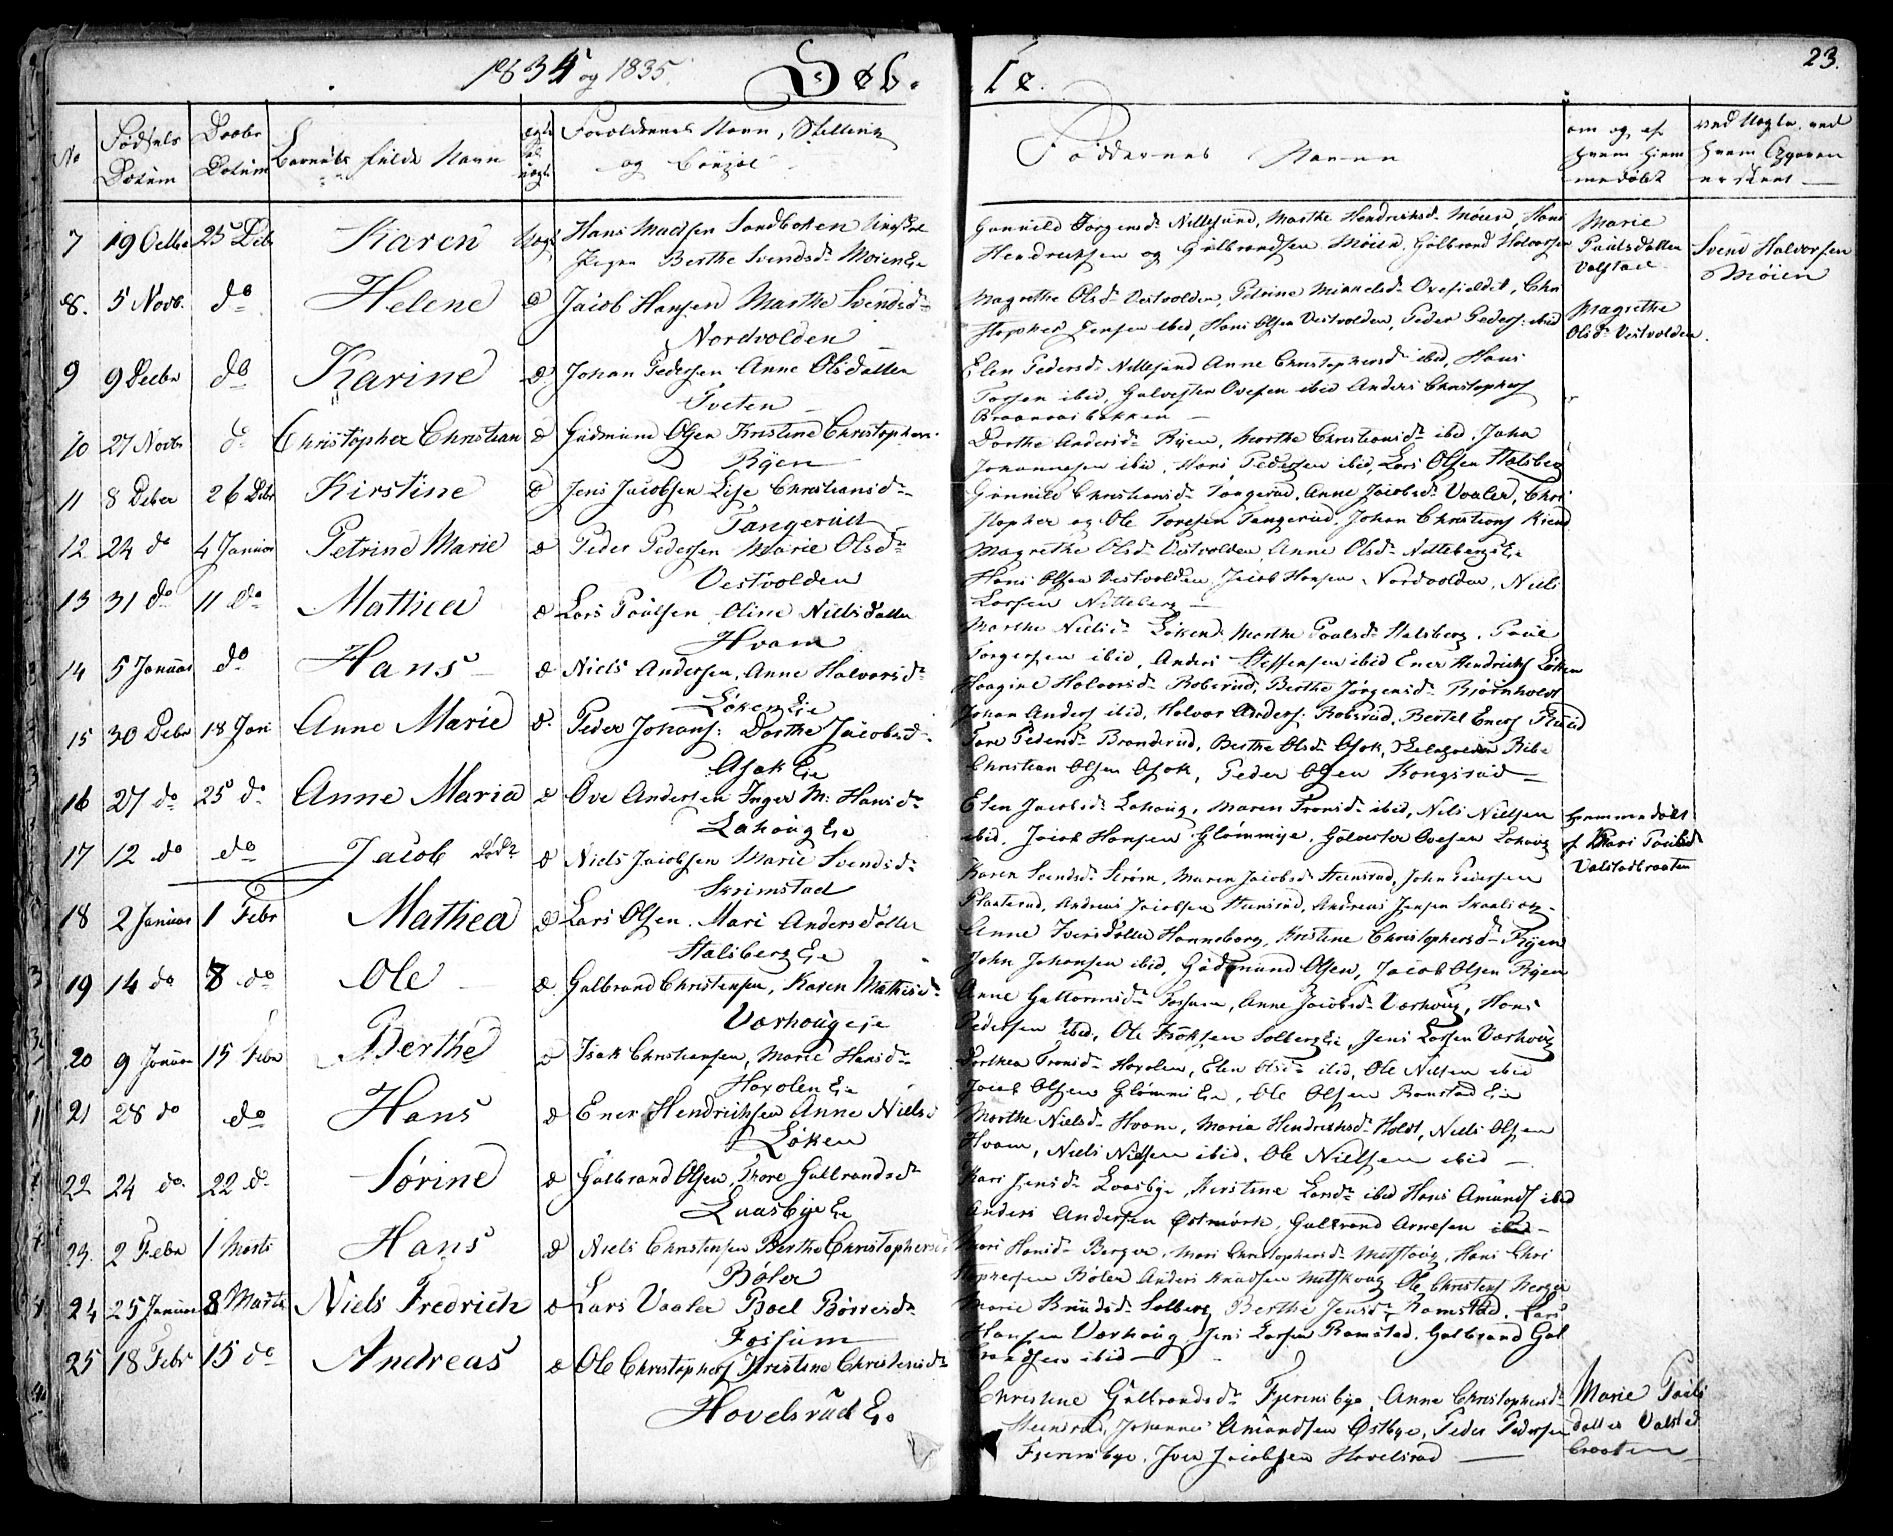 1834 og 1835
Døb.
te.
23.
No
Fødsels Datum
Daabs Datum
Barnets fulde Navn
Forældrenes Navn, Stilling og
Faddernes Navne
om og af hvem hjemmedøbt
7 19 Octbr 25 Dcbr Karen Hans Madsen Sandbaken Ungkarl
Pigen Berthe Svendsd. Moien Eie
Gunnild Jørgensd. Nillesund, Marthe Hendrichsd. Møien, Hans
Hendrichsen og Gulbrandsen Møien, Gulbrand Halvorsen
Marie Paulsdatter Valstad
Svend Halvorsen Møien
8. 5 Novb. do Helene do Jacob Hansen Marthe Svendsd.
Nordvolden
Magrethe Olsd. Vestvolden, Petrine Mikkelsd. Ovefieldet, Chri
stopher Jensen ibid, Hans Olsen Vestvolden, Peder Peders: ibid
Magrethe Olsd. Vestvolden.
9 9 Decbr do Karine do Johan Pedersen Anne Olsdatter
Tveten
Elen Pedersd. Nillesund Anne Christophersd. ibid, Hans
Torsen ibid, Gulvester Ovesen ibid Anders Christophers
Braanaasbakken
10 27 Novbr do Christopher Christian do Gudmund Olsen Kristine Christophers.
Ryen
Dorthe Andersd. Ryen, Marthe Christiansd. ibid, John
Johannesen ibid, Hans Pedersen ibid, Lars Olsen Stalsberg
11 8 Dcber 26 Dcbr Kirstine do Jens Jacobsen Lise Christiansd.
Tangerud
Gunnild Christiansd. Tangerud, Anne Jacobsd. Vaaler, Chri
stopher og Ole Toresen Tangerud, Johan Christians Riend
12 24 do 4 Januar Petrine Marie do Peder Pedersen Marie Olsd.
Vestvolden
Magrethe Olsd. Vestvolden Anne Olsd. Nitteberg Eie
Hans Olsen Vestvolden, Jacob Hansen Nordvolden, Niels
Larsen Nitteberg
13 31 do 11 do Mathea do Lars Poulsen Oline Nielsdatter
Hvam
Marthe Nielsd. Løken Marthe Paulsd. Stalsberg, Paul
Torgersen ibid, Anders Steffensen ibid Ener Hendrichs Løken
14 5 Januar do Hans do Niels Andersen, Anne Halvorsd.
Løken Eie
Haagine Halvorsd. Robsrud, Berthe Jørgensd. Bjørnholdt
Johan Anders ibid, Halvor Anders: Robsrud, Bertel Eners
15 30 Dcbr 18 Jan Anne Marie do. Peder Johans: Dorthe Jacobsd.
Asak Eie
Tore Pedersd. Branderud, Berthe Olsd. Asak,
Christian Olsen Asak, Peder Olsen Kongsrud
16 27 do 25 do Anne Maria do Ove Andersen Inger M: Hansd.
Lahaug Eie
Elen Jacobsd. Lahaug, Maren Tronsd. ibid, Nils Nielsen
ibid, Jacob Hansen Glømmije, Gulvester Ovesen Lahaug
hjemmedøbt af Mari Paulsd. Valstadbraaten
17 12 do do Jacob Død do Niels Jacobsen Marie Svendsd.
Skrimstad
Karen Svendsd. Strøm, Maren Jacobsd. Steensrud, John Pedersen
Plaaterud, Andreas Jacobsen Steensrud, Andreas Jensen
18 2 Januar 1 Febr Mathea do Lars Olsen Mari Andersdatter
Stalsberg Eie
Anne Iversdatter Hanneborg, Kristine Christophersd. Ryen
John Johansen ibid, Gudmund Olsen, Jacob Olsen Ryen
19 14 do 8 do Ole do. Gulbrand Christensen, Karen Mathisd.
Varhoug eie
Anne Guttormsd. Fossum, Anne Jacobsd. Varhoug, Hans
Pedersen ibid, Ole Isaksen Solberg Eie, Jens Larsen Varhoug
20 9 Januar 15 Febr Berthe do Isak Christiansen, Marie Hansd.
Haxolen Eie
Dorthea Tronsd. Haxolen, Elen Olsd. ibid, Ole Nielsen ibid
Jacob Olsen Glømmi Eie, Ole Olsen Ramstad Eie
21 28 do do Hans do Ener Hendrichsen Anne Nielsd
Løken
Marthe Nielsd. Hvam, Maria Hendrichsd. Holdt, Niels Olsen
Hvam, Niels Nielsen ibid. Ole Nielsen ibid
22 24 do 22 do Sørine do Gulbrand Olsen, Thore Gulbrandsd
Luasbye Eie
Kari Jensd. Laasbye, Kerstine Larsd. ibid Hans Amunds ibid
Anders Andersen Østmork, Gulbrand Arnesen ibid
23. 2 Febr 1 Marts Hans do Niels Christensen Berthe Christophersd.
Bøler
Mari Hansd. Berger, Mari Christophersd. Mitskoug, Hans Chri
stophersen Bøler Anders Knudsen Mitskoug Ole Christens Berger
24 25 Januar 8 Marts Niels Fredrich do Lars Vaaler Boel Børresd.
Fossum
Marie Knudsd. Solberg Berthe Jensd. Ramstad, Lars
Hansen Varhoug, Jens Larsen Ramstad, Gulbrand Gul
brandsen ibid
25 18 Febr 15 do Andreas do Ole Christophers Kristine Christensd.
Hovelsrud Eie
Christine Gulbrandsd. Fjerensbye, Anne Christophersd.
Steensrud, Johannes Amundsen Østbye, Peder Pedersen
Fjerensbye, Iver Jacobsen Hovelsrud
Marie Pouls
datter Valstad
braaten